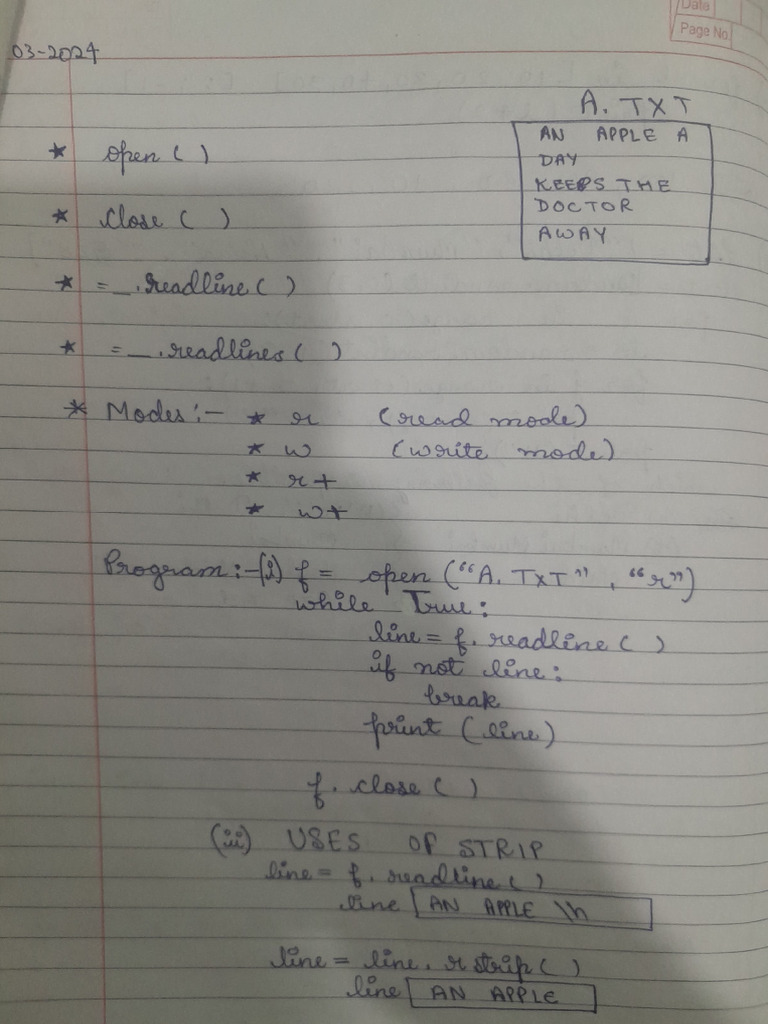 Date
Page No.
03-2024
A. TXT
AN APPLE A
DAY
KEEPS THE
DOCTOR
AWAY
* open ( )
* close ( )
* = _ . readline ( )
* = _ . readlines ( )
* Modes :- * r (read mode)
* w (write mode)
* r+
* w+
Program :- (i) f = open ("A. TXT", "r")
while True :
line = f. readline ( )
if not line :
break
print (line)
f. close ( )
(ii) USES OF STRIP
line = f. readline ( )
line AN APPLE \n
line = line. rstrip ( )
line AN APPLE